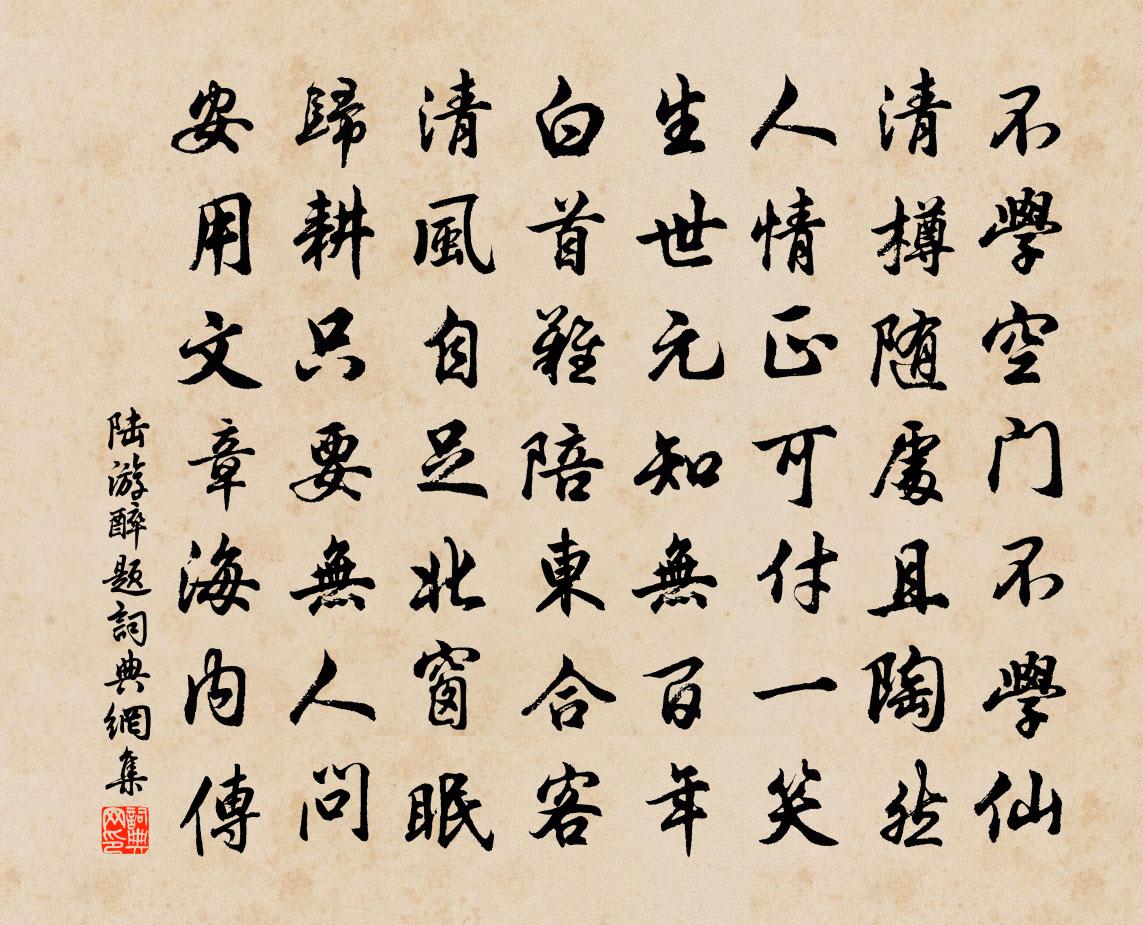 不學空門不學仙
清樽随處且陶然
人情正可付一笑
生世元知無百年
白首難陪東合客
清風自足北窗眠
歸耕只要無人問
安用文章海内傳
陆游醉题詞典網集
詞典网印